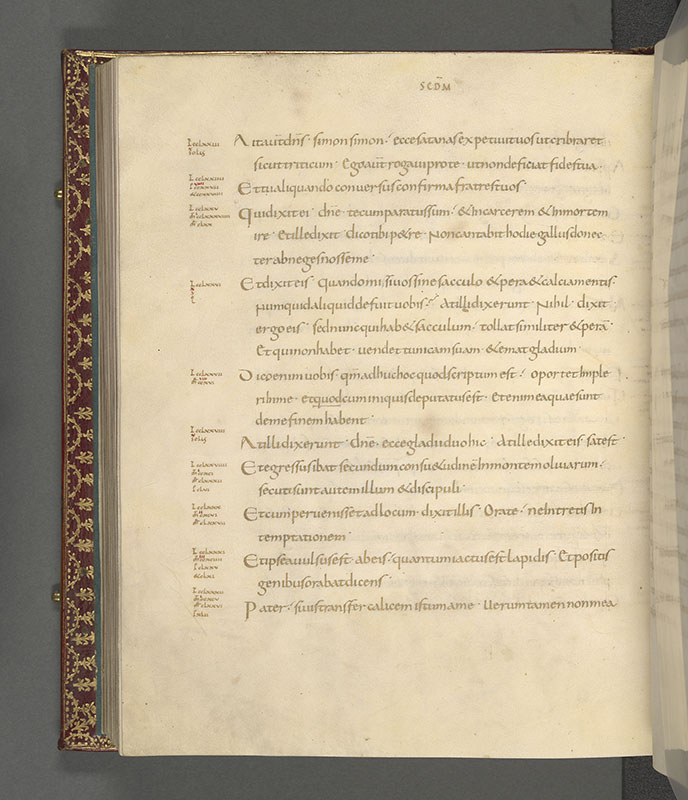 SCDM
Aitaut dns · simon simon · ecce satanas expetiuit uos ut cribraret
sicut triticum · Ego aut rogaui pro te · ut non deficiat fides tua ·
Et tu aliquando conuersus confirma fratres tuos
Qui dixit ei · dne · tecum paratus sum · & in carcerem & in mortem
ire · Et ille dixit · dico tibi p&re · Non cantabit hodie gallus donec
ter abneges nosse me ·
Et dixit eis · quando misi uos sine sacculo & pera & calciamentis ·
Numquid aliquid defuit uobis · At illi dixerunt · Nihil · dixit
ergo eis · sed nunc qui hab& sacculum · tollat similiter & pera
Et qui non habet · uendet tunicam suam · & emat gladium ·
Dico enim uobis · qm adhuc hoc quod scriptum est · oportet imple
ri in me · et quod cum iniquis deputatus est · Etenim ea quae sunt
de me finem habent ·
At illi dixerunt · dne · ecce gladii duo hic · At ille dixit eis · satest
Et egressus ibat secundum consu&udine in montem oliuarum ·
secuti sunt autem illum & discipuli ·
Et cum peruenisset ad locum · dixit illis · Orate · ne intretis in
temptationem ·
Et ipse auulsus est ab eis · quantum iactus est lapidis · Et positis
genibus orabat dicens ·
Pater · si uis transfer calicem istum a me · Uerumtamen non mea